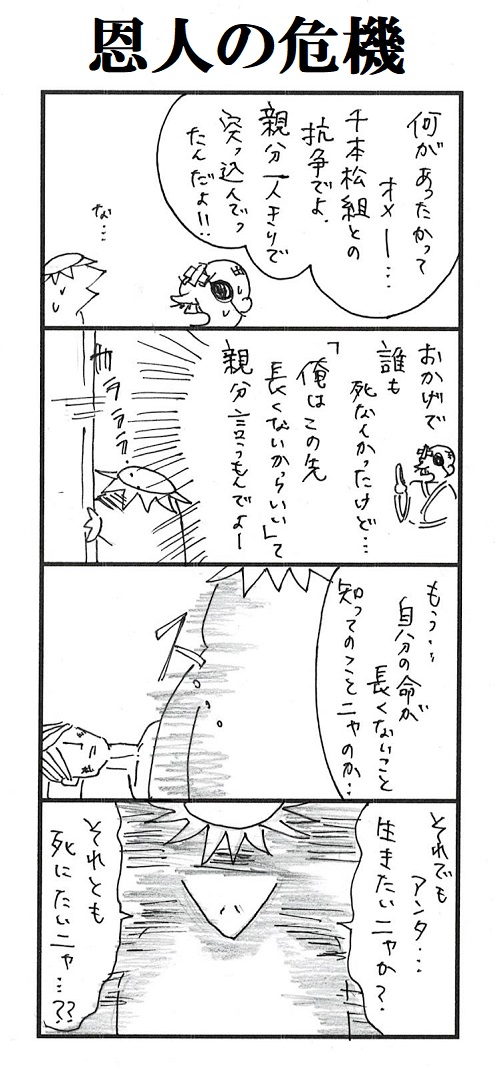 恩人の危機
何があったかって
オメー…
千本松組との
抗争でよ.
親分一人きりで
突っ込んでっ
たんだよ!!
な…
おかげで
誰も
死なんかったけど…
「俺はこの先
長くないからいい」て
親分言うもんでよー
ガラララ…
もう…
自分の命が
長くないこと
知ってのことニャのか…
それでも
アンタ…
生きたいニャか?
それとも
死にたいニャ…??